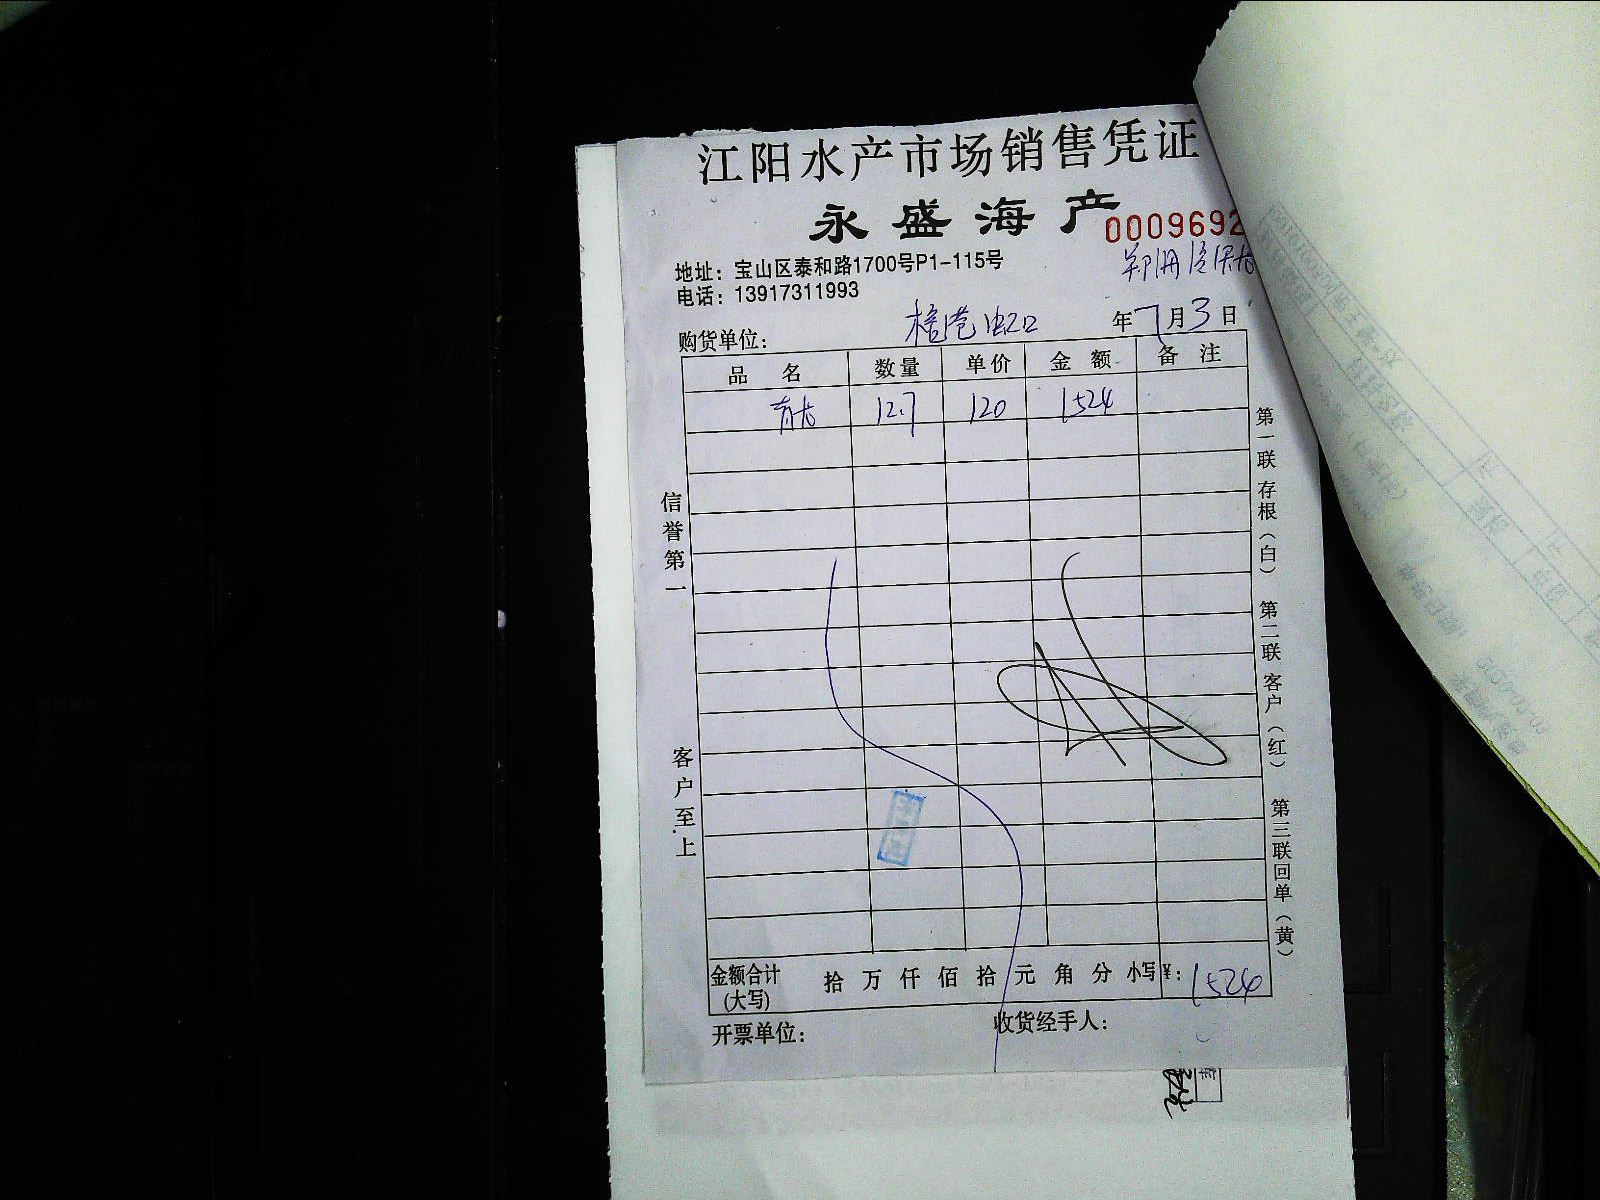 江阳水产市场销售凭证
永盛海产
0009692
地址：宝山区泰和路1700号P1-115号
电话：13917311993
购货单位：
年7月3日
品 名 数量 单价 金 额 备 注
12.7 120 1524
信誉第一
客户至上
第一联 存根（白）
第二联 客户（红）
第三联 回单（黄）
金额合计（大写） 拾 万 仟 佰 拾 元 角 分 小写¥：1524
开票单位： 收货经手人：